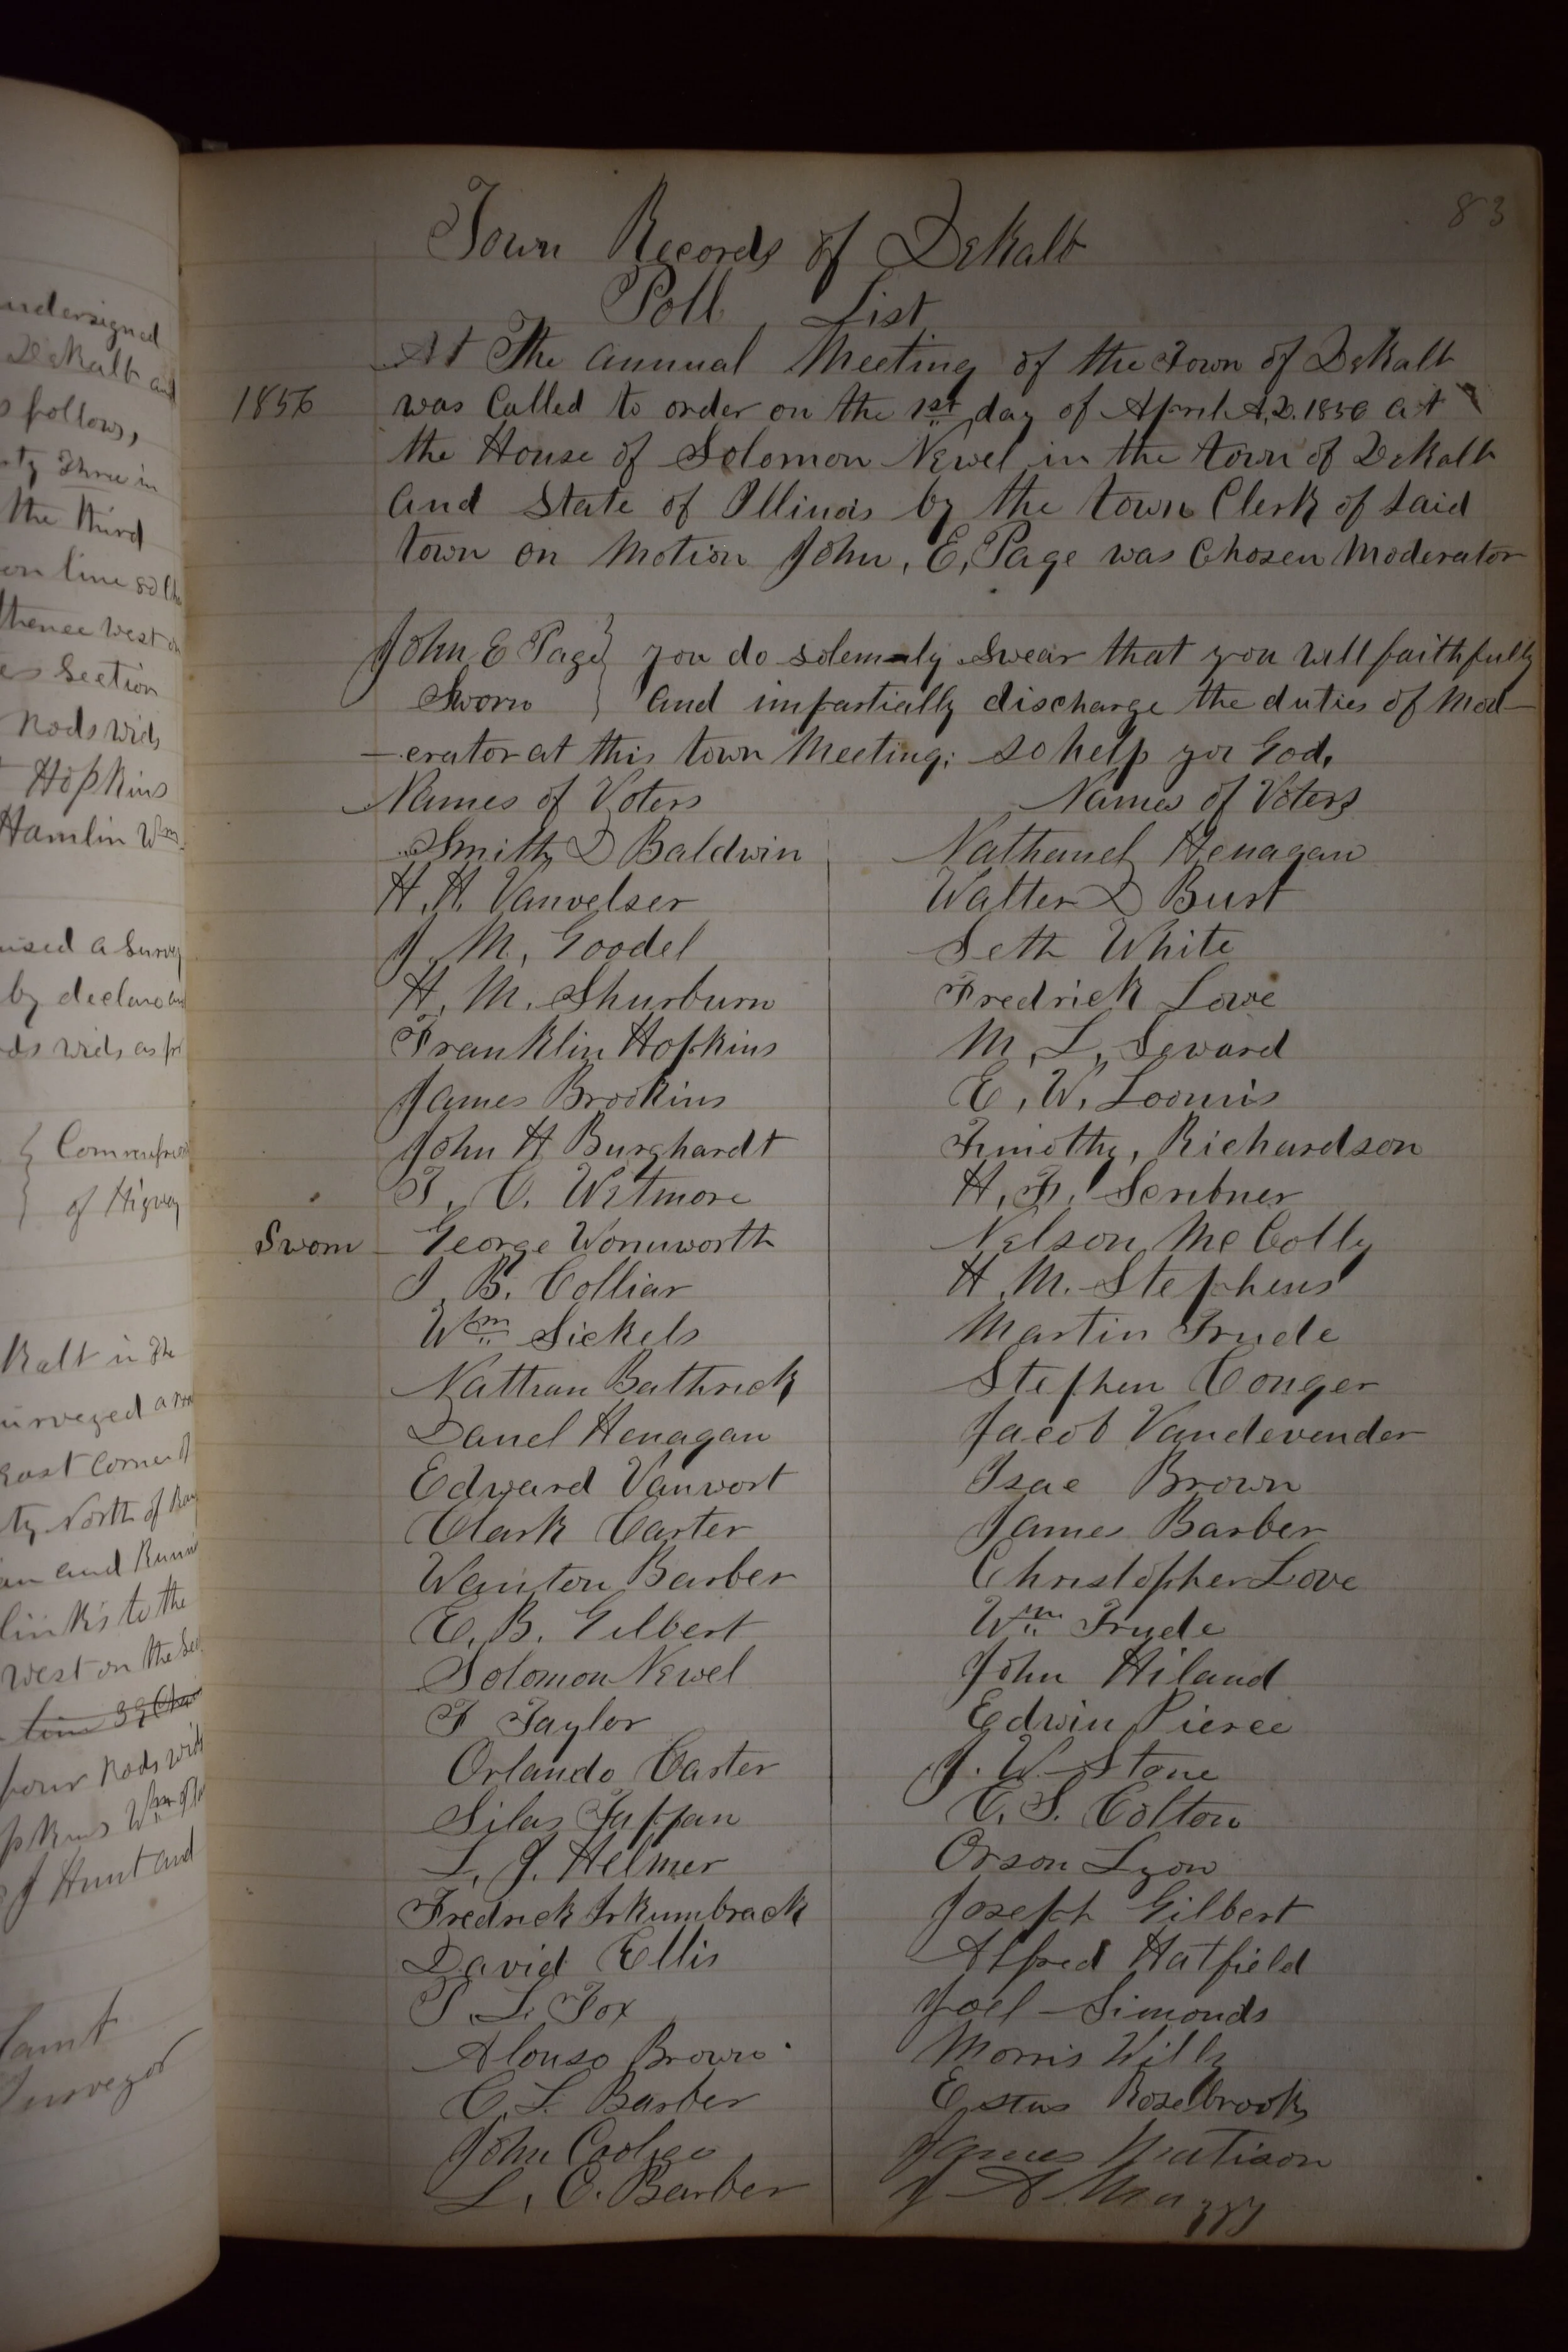 83
Town Records of DeKalb
Poll List
At The annual Meeting of the Town of DeKalb
1856 was Called to order on the 1st day of April A,D. 1856 at
the House of Solomon Newel in the town of DeKalb
and State of Illinois by the town Clerk of said
town on Motion John, E, Page was Chosen Moderator
John E Page } you do solemnly Swear that you will faithfully
Sworn } and impartially discharge the duties of Mod-
-erator at this town Meeting; so help you God,
Names of Voters
Smith D Baldwin
H. H. Vanvelser
J. M, Goodel
H. M. Shurburn
Franklin Hopkins
James Brookins
John H Burghardt
T. C. Wetmore
Sworn George Wormworth
I. B. Colliar
Wm Sickels
Nathan Bathrick
Danel Henagan
Edward Vanvort
Clark Carter
Wanton Barber
E. B. Gilbert
Solomon Newel
F Taylor
Orlando Carter
Silas Tappan
L, J. Helmer
Fredrick
David Ellis
P. L. Fox
Alonso Brown
C. L. Barber
John
L, C. Barber
Names of Voters
Nathanel Henagan
Walter D Burt
Seth White
Fredrick Love
M, L, Seward
E, W, Loomis
Timothy, Richardson
H, F, Scribner
Nelson McColly
H. M. Stephens
Martin Trude
Stephen Conger
Jacob Vandevender
Isac Brown
James Barber
Christopher Love
Wm Trude
John Hiland
Edwin Pierce
J. W. Stone
C. S. Colton
Orson Lyon
Joseph Gilbert
Alfred Hatfield
Joel Simonds
Morris Willy
Estus Rosebrook
James Matison
J A
undersigned
DeKalb and
follows,
Three in
the third
on line
thence West on
Section
Rods wide
Hopkins
Hamlin Wm
a Survey
by declare
wide as
of
in The
surveyed a
East Corner of
North of
and
links to the
West on the
four Rods wide
J Hunt and
Surveyor